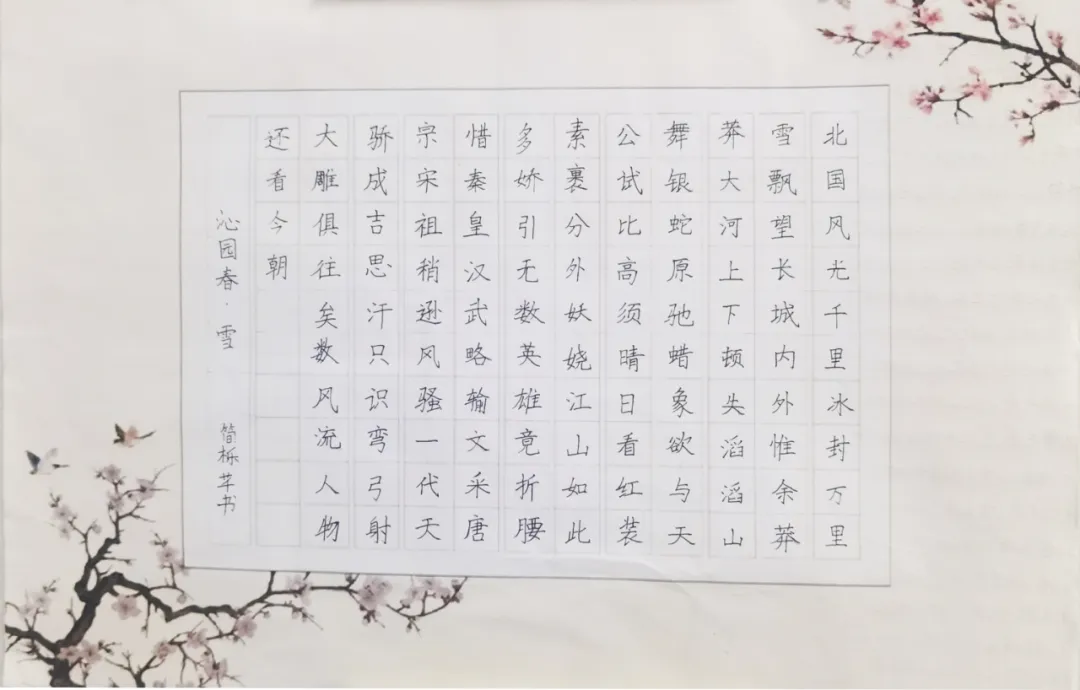 北国风光千里冰封万里
雪飘望长城内外惟余莽
莽大河上下顿失滔滔山
舞银蛇原驰蜡象欲与天
公试比高须晴日看红装
素裹分外妖娆江山如此
多娇引无数英雄竟折腰
惜秦皇汉武略输文采唐
宗宋祖稍逊风骚一代天
骄成吉思汗只识弯弓射
大雕俱往矣数风流人物
还看今朝
沁园春·雪 简栎芊书